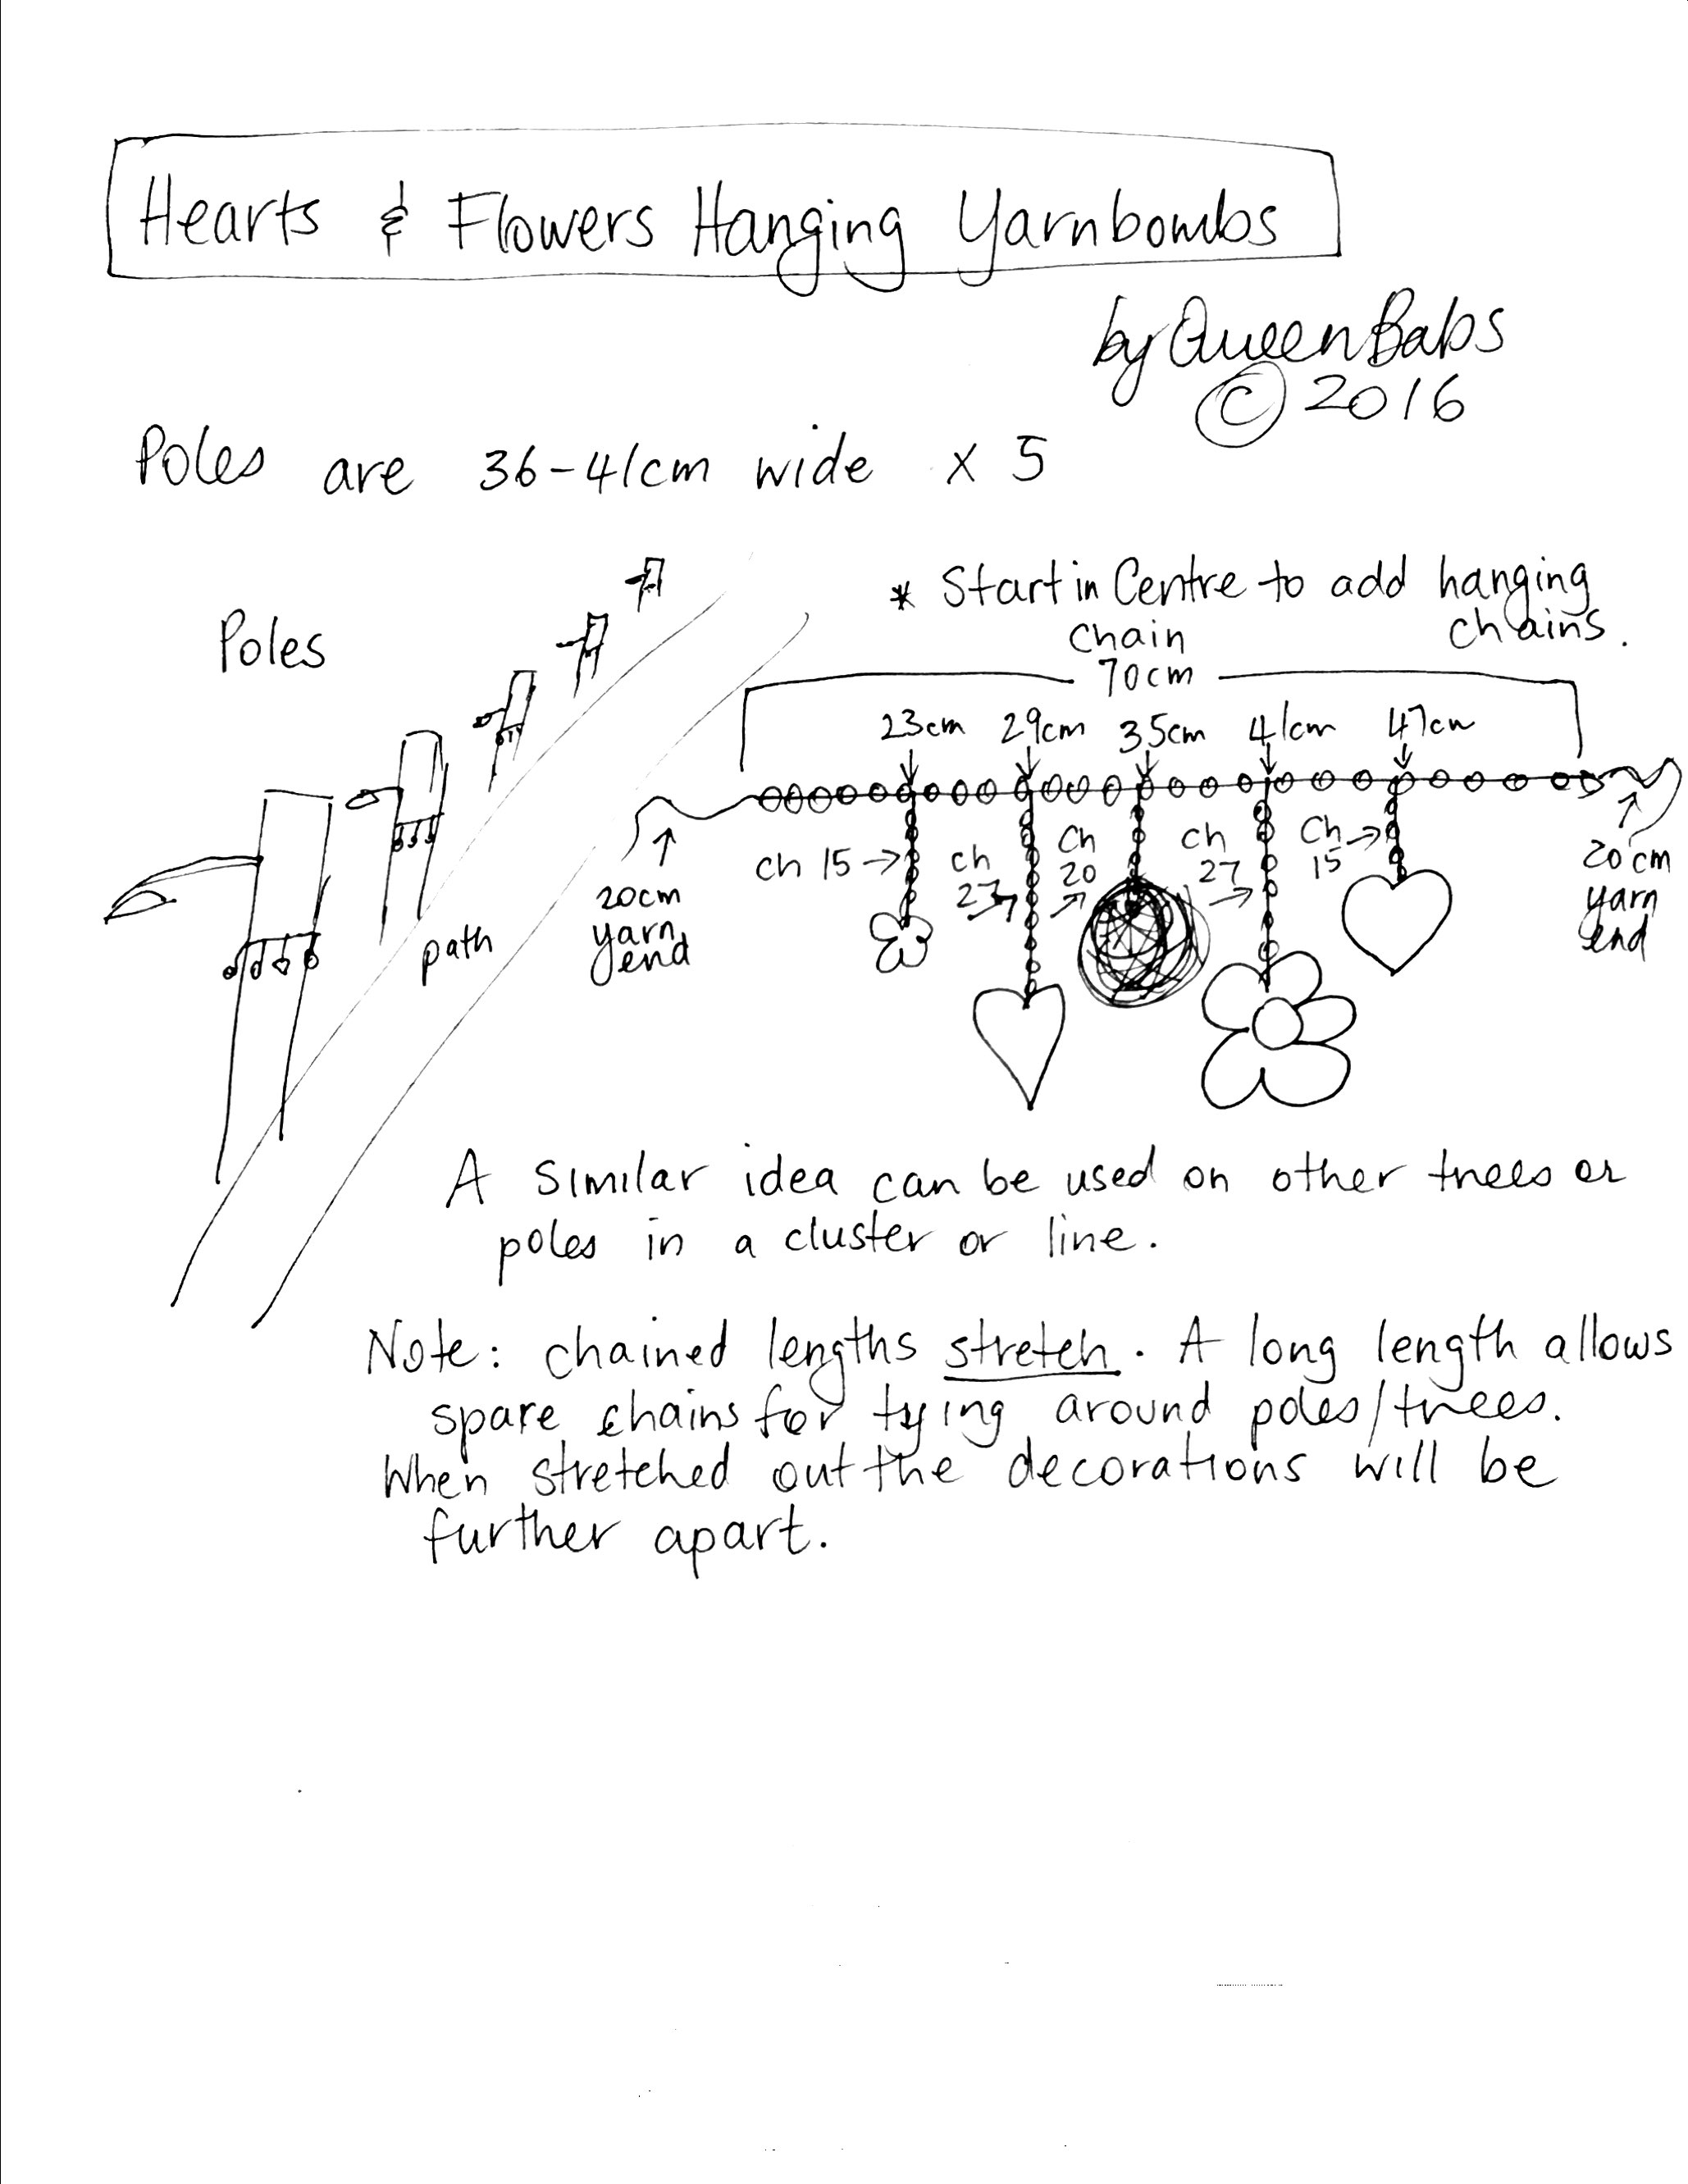 Hearts & Flowers Hanging Yarnbombs
by QueenBabs
© 2016
Poles are 36-41cm wide x 5
Poles
* Start in Centre to add hanging
chains.
chain
70cm
23cm 29cm 35cm 41cm 47cm
ch 15
ch
27
Ch
20
ch
27
Ch
15
20cm
yarn
end
20cm
yarn
end
path
A similar idea can be used on other trees or
poles in a cluster or line.
Note: chained lengths stretch. A long length allows
spare chains for tying around poles/trees.
When stretched out the decorations will be
further apart.